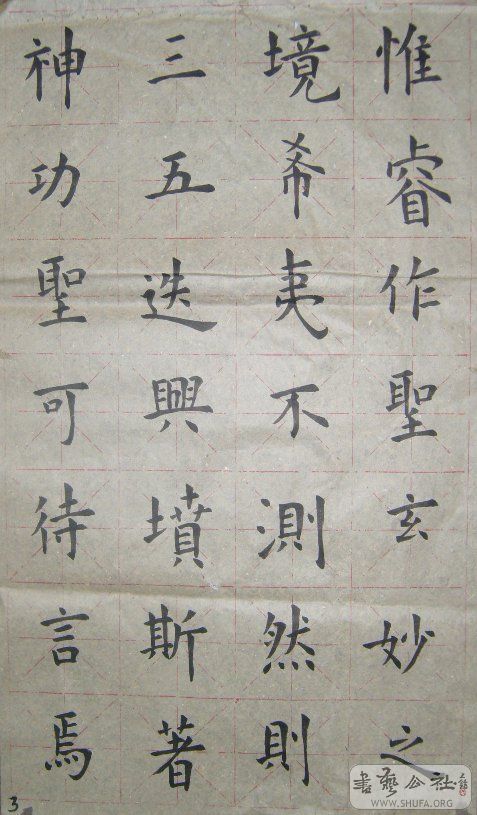 惟睿作聖玄妙之
境希夷不測然則
三五迭興墳斯著
神功聖可待言焉
3
書藝公社
WWW.SHUFA.ORG